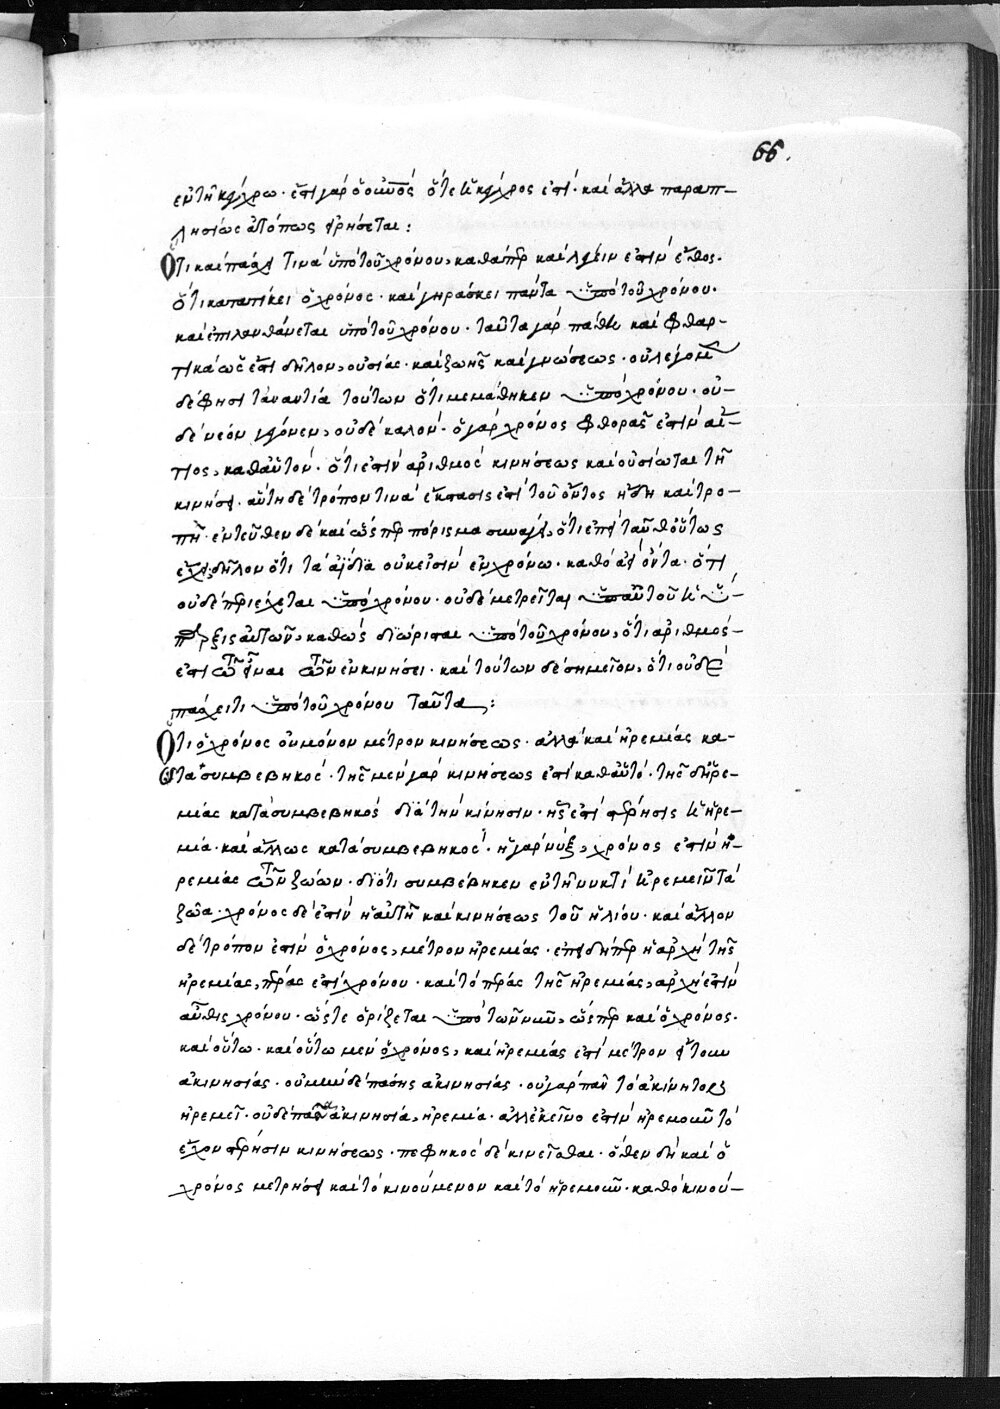 66.
ἐν τῆ κέγχρω· ἔστι γὰρ ὁ αὐτὸς ὅτε κέγχρος ἐστί· καὶ ἄλλα παραπ-
λησίως ἀτόπως
ὅτι καὶ πάσχει τινὰ ὑπὸ τοῦ χρόνου, καθάπερ καὶ λέγειν ἐστὶν ἔθος·
ὅτι κατατήκει ὁ χρόνος· καὶ γηράσκει πάντα ὑπὸ τοῦ χρόνου·
καὶ ἐπιλανθάνεται ὑπὸ τοῦ χρόνου· ταῦτα γὰρ πάθη καὶ φθαρ-
τικὰ ὡς ἔστι δῆλον, οὐσίας· καὶ ζωῆς καὶ γνώσεως· οὐ λέγομεν
δέ φησι τἀναντία τούτων ὅτι μεμάθηκεν ὑπὸ χρόνου· οὐ-
δὲ νέον γέγονεν, οὐδὲ καλόν· ὁ γὰρ χρόνος φθορᾶς ἐστὶν αἴ-
τιος, καθ' αὑτόν· ὅτι ἐστὶν ἀριθμὸς κινήσεως καὶ οὐσίωται τῆ
κινήσει· αὕτη δὲ τρόπον τινὰ ἔκστασις ἐστὶ τοῦ ὄντος ἤδη καὶ τρο-
πή· ἐντεῦθεν δὲ καὶ ὥσπερ πόρισμα συναγει, ὅτι ἐπεὶ ταῦθ' οὕτως
ἔχει, δῆλον ὅτι τὰ ἀΐδια οὐκ εἰσὶν ἐν χρόνω· καθὸ ἀεὶ ὄντα· ὅτι
οὐδὲ περιέχεται ὑπὸ χρόνου· οὐδὲ μετρεῖται ὑπ' αὐτοῦ ἡ ὕ-
παρξις αὐτῶν, καθὼς διώρισται ὑπὸ τοῦ χρόνου, ὅτι ἀριθμός
ἐστι τῶν εἶναι τῶν ἐν κινήσει· καὶ τούτων δὲ σημεῖον, ὅτι οὐδὲ
πάσχει τι ὑπὸ τοῦ χρόνου ταῦτα:
ὅτι ὁ χρόνος οὐ μόνον μέτρον κινήσεως· ἀλλὰ καὶ ἠρεμίας κα-
τὰ συμβεβηκός· τῆς μὲν γὰρ κινήσεως ἐστὶ καθ' αὑτό· τῆς δ' ἠρε-
μίας κατὰ συμβεβηκὸς διὰ τὴν κίνησιν· ἧς ἐστὶ στέρησις ἡ ἠρε-
μία· καὶ ἄλλως κατὰ συμβεβηκός· ἡ γὰρ νύξ, χρόνος ἐστὶν ἠ-
ρεμίας τῶν ζώων· διότι συμβέβηκεν ἐν τῆ νυκτὶ ἠρεμεῖν τὰ
ζῶα· χρόνος δὲ ἐστὶν ἡ αὐτὴ καὶ κινήσεως τοῦ ἡλίου· καὶ ἄλλον
δὲ τρόπον ἐστὶν ὁ χρόνος, μέτρον ἠρεμίας· ἐπειδήπερ ἡ ἀρχὴ τῆς
ἠρεμίας, πέρας ἐστὶ χρόνου· καὶ τὸ πέρας τῆς ἠρεμίας, ἀρχὴ ἐστὶν
αὖθις χρόνου· ὥστε ὁρίζεται ὑπὸ τῶν νῦν, ὥσπερ καὶ ὁ χρόνος·
καὶ οὕτω· καὶ οὕτω μὲν ὁ χρόνος, καὶ ἠρεμίας ἐστὶ μέτρον ἤτοι
ἀκινησίας· οὐ μὴν δὲ πάσης ἀκινησίας· οὐ γὰρ πᾶν τὸ ἀκίνητον
ἠρεμεῖ· οὐδὲ πᾶσα ἀκινησία, ἠρεμία· ἀλλ' ἐκεῖνο ἐστὶν ἠρεμοῦν τὸ
ἔχον στέρησιν κινήσεως· πεφηκὸς δὲ κινεῖσθαι· ὅθεν δὴ καὶ ὁ
χρόνος μετρήσει καὶ τὸ κινούμενον καὶ τὸ ἠρεμοῦν· καθὸ κινού-